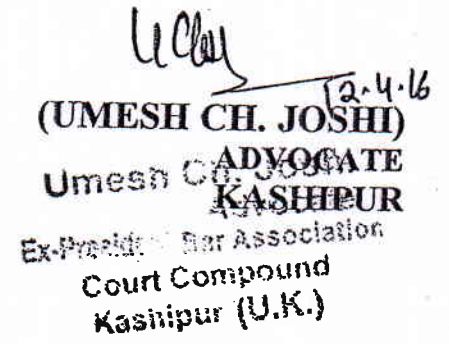 12.4.16
(UMESH CH. JOSHI)
ADVOCATE
KASHIPUR
Umesh Ch. Joshi
Ex-President Bar Association
Court Compound
Kashipur (U.K.)